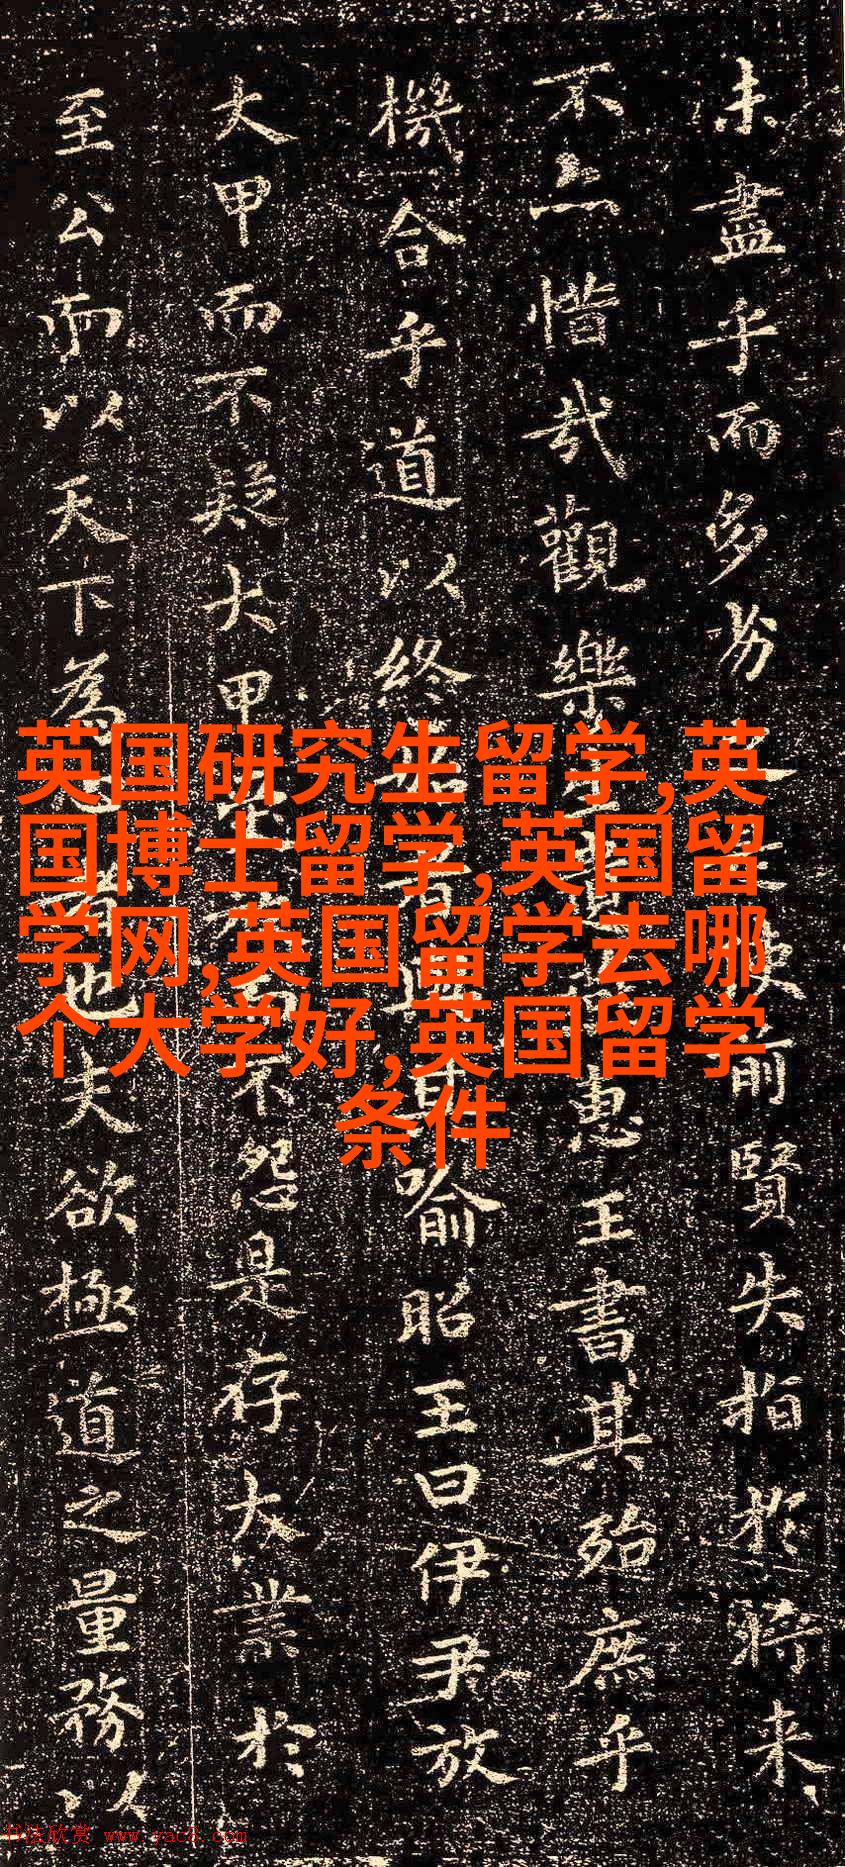 未盡乎而多劣之是使前賢失指於將来
不亦惜哉觀樂生遺燕惠王書其殆庶乎
機合乎道以終始者與其喻昭王曰伊尹放
大甲而不疑大甲受放而不怨是存大業於
至公而以天下為心者也夫欲極道之量務以
英国研究生留学,英
国博士留学,英国留
学网,英国留学去哪
个大学好,英国留学
条件
书法欣赏 www.yac8.com